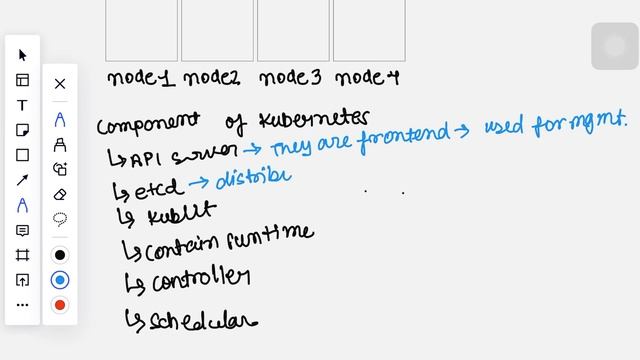 node1 node2 node3 node4
Component of Kubernetes
↳API server → They are frontend → used for mgmt.
↳etcd → distribu
↳kublet
↳contain runtime
↳controller
↳schedular
T
A